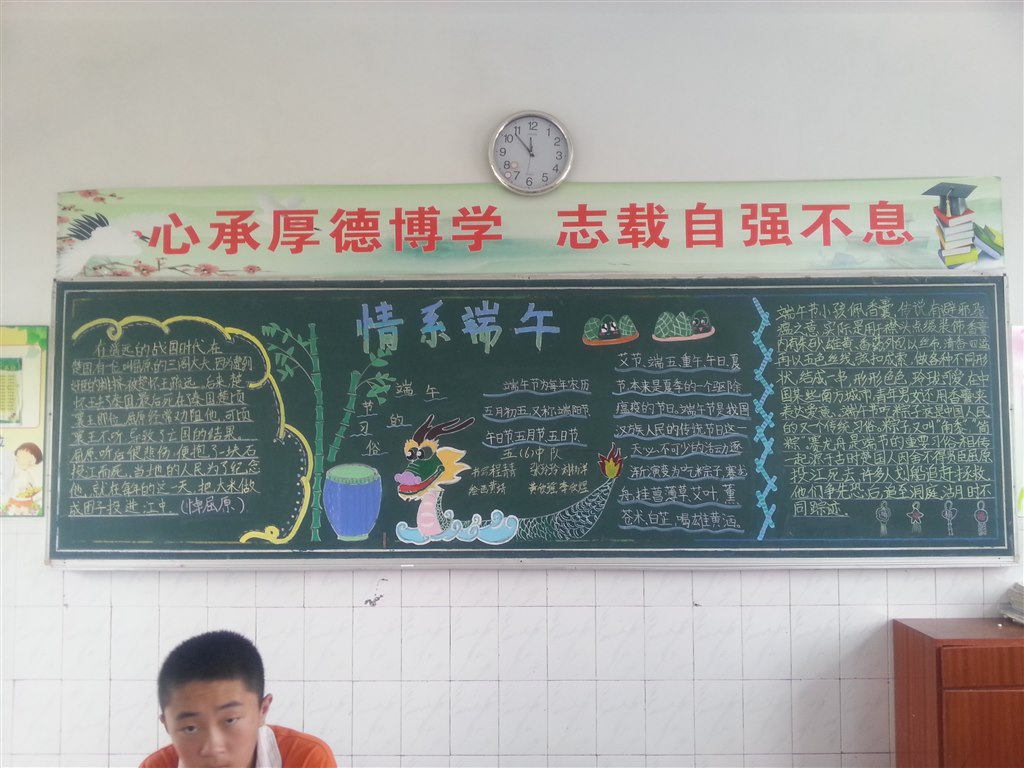 心承厚德博学 志载自强不息
12
1
2
3
4
5
6
7
8
9
10
11
情系端午
在遥远的战国时代,在
楚国有一位叫屈原的三闾大夫,因为遭到
襄王不听,后致了亡国的结果。
屈原听后很悲伤,便抱了一块石
投江而死,当地的人民为了纪念
他,就在每年的这一天,把大米做
成团子投进江中。(悼屈原)
端午
节的
习
俗
端午节为每年农历
五月初五,又称端阳节
午日节五月节五日节
五(6)中队
艾节,端五,重午,午日,夏
节,本来是夏季的一个驱除
瘟疫的节日。端午节是我国
汉族人民的传统节日,这一
天必不可少的活动逐
渐演变为吃粽子,赛龙
舟,挂菖蒲草,艾叶,薰
苍术,白芷,喝雄黄酒。
端午节小孩佩香囊,传说有避邪驱
瘟之意,实际是用于襟头点缀装饰。香囊
内有朱砂、雄黄、香药,外包以丝布,清香四溢
再以五色丝线弦扣成索,做各种不同形
状,结成一串,形形色色,玲珑可爱。在中
国某些南方城市,青年男女还用香囊来
表达爱意。端午节吃粽子,这是中国人民
的又一个传统习俗。粽子,又叫"角黍""筒
粽"。赛龙舟是端午节的重要习俗。相传
起源于古时楚国人因舍不得贤臣屈原
投江死去,许多人划船追赶拯救。
他们争先恐后,追至洞庭湖时不
同踪迹。